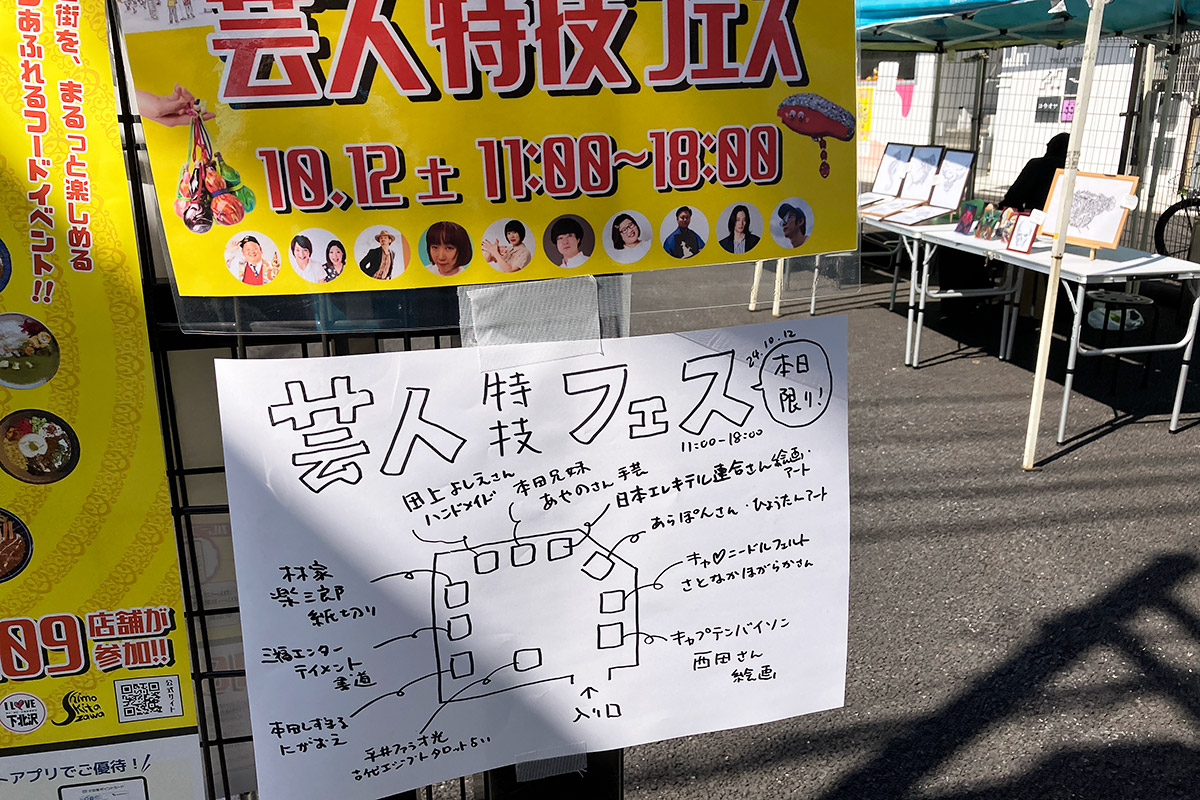 街を、まるっと楽しめる
あふれるフードイベント!!
09店舗が
参加!!
I LOVE
下北沢
Shimo
Kita
zawa
公式サイト
アプリでご優待!
芸人特技フェス
10.12土 11:00~18:00
芸人特技フェス
24.10.12
本日
限り!
11:00-18:00
田上よしえさん
ハンドメイド
本田兄妹
あやのさん 手芸
日本エレキテル連合さん 絵画・
アート
あらぽんさん・ひょうたんアート
キャ♡ニードルフェルト
さとなかほがらかさん
キャプテンバイソン
西田さん
絵画
林家
楽三郎
紙切り
三福エンター
テイメント
書道
本田しずまる
にがおえ
平井ファラオ光
古代エジプトタロット占い
↑
入り口